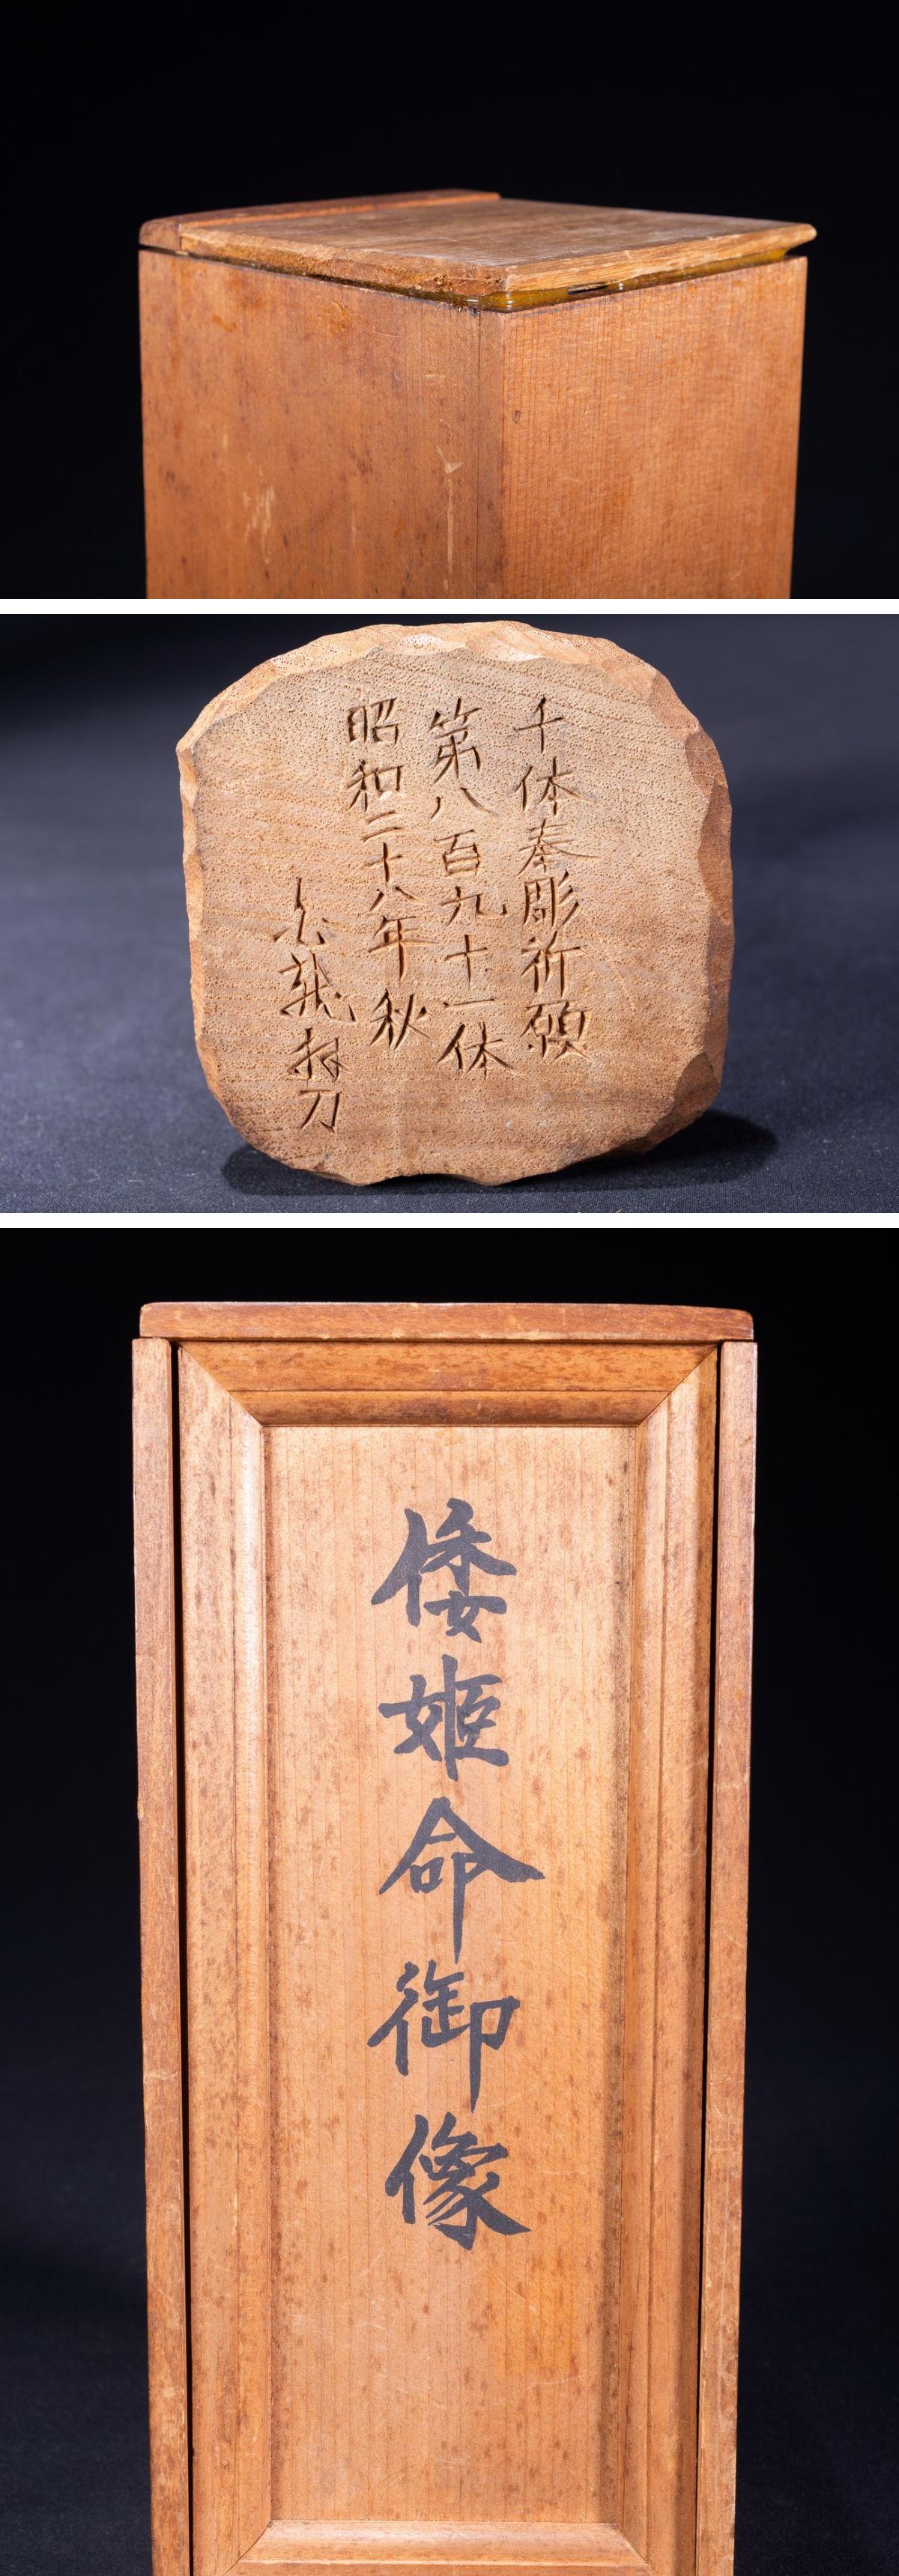 千体奉彫祈願
第八百九十一体
昭和二十八年秋
刀
倭姫命御像